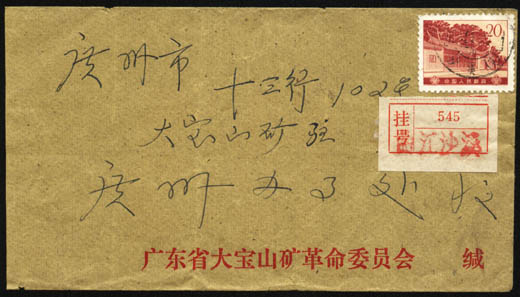 20
中国人民邮政
广州市
十三行102号
大宝山矿驻
挂号
545
沙溪
广州办了处收
广东省大宝山矿革命委员会 缄